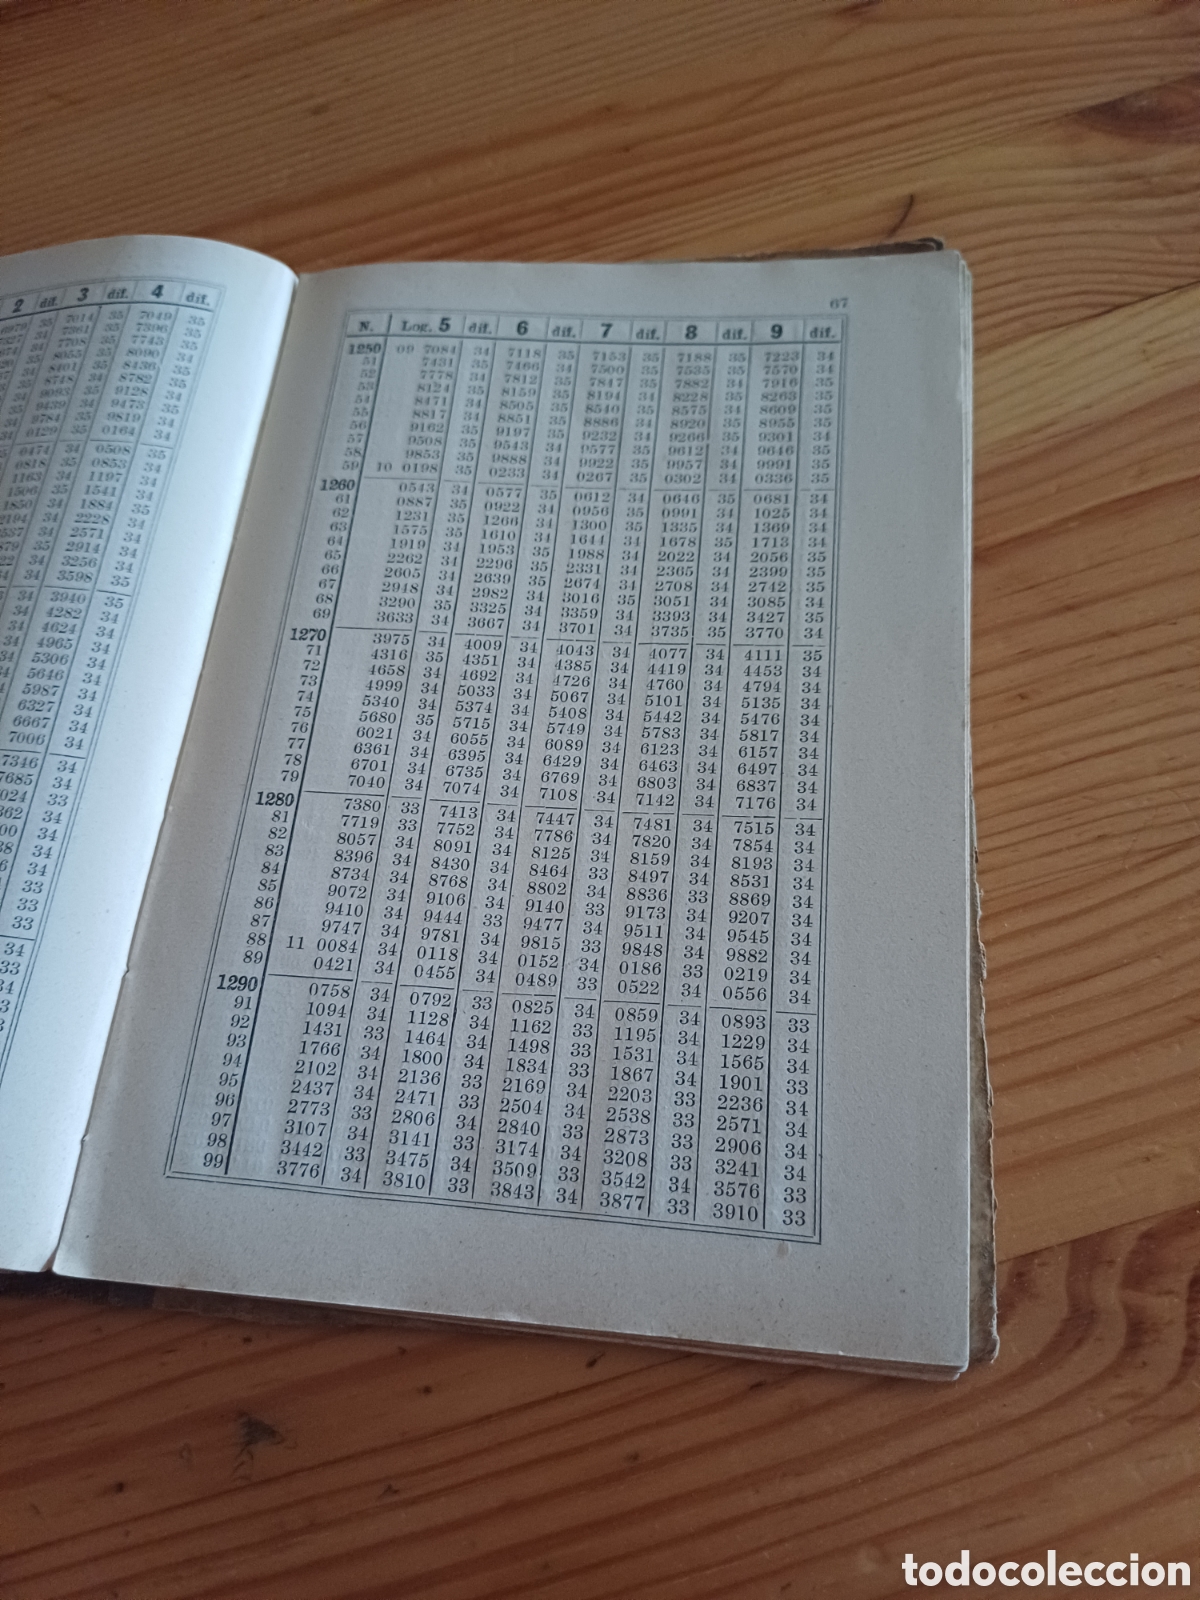 2 dif. 3 dif. 4 dif.
35 7014 35 7049 35
7396
7743
8090
8436
8782
9128
9473
9819
0164
0474 34 0508 35
0818 35 0853 34
1163 34 1197 34
1506 35 1541 34
1850 34 1884 35
2194 34 2228 34
2571 34
2914 34
3256 34
3598 35
34 3940 35
34 4282 34
4624 34
4965 34
5306 34
5646 34
5987 34
6327 34
6667 34
7006 34
7346 34
7685 34
33
34
34
34
34
33
33
33
67
N. Log. 5 dif. 6 dif. 7 dif. 8 dif. 9 dif.
1250 09 7084 34 7118 35 7153 35 7188 35 7223 34
51 7431 35 7466 34 7500 35 7535 35 7570 34
52 7778 34 7812 35 7847 35 7882 34 7916 35
53 8124 35 8159 35 8194 34 8228 35 8263 35
54 8471 34 8505 35 8540 35 8575 34 8609 35
55 8817 34 8851 35 8886 34 8920 35 8955 35
56 9162 35 9197 35 9232 34 9266 35 9301 34
57 9508 35 9543 34 9577 35 9612 34 9646 35
58 9853 35 9888 34 9922 35 9957 34 9991 35
59 10 0198 35 0233 34 0267 35 0302 34 0336 34
1260 0543 34 0577 35 0612 34 0646 35 0681 34
61 0887 35 0922 34 0956 35 0991 34 1025 34
62 1231 35 1266 34 1300 35 1335 34 1369 34
63 1575 35 1610 34 1644 34 1678 35 1713 34
64 1919 34 1953 35 1988 34 2022 34 2056 35
65 2262 34 2296 35 2331 34 2365 34 2399 35
66 2605 34 2639 35 2674 34 2708 34 2742 35
67 2948 34 2982 34 3016 35 3051 34 3085 34
68 3290 35 3325 34 3359 34 3393 34 3427 35
69 3633 34 3667 34 3701 34 3735 35 3770 34
1270 3975 34 4009 34 4043 34 4077 34 4111 35
71 4316 35 4351 34 4385 34 4419 34 4453 34
72 4658 34 4692 34 4726 34 4760 34 4794 34
73 4999 34 5033 34 5067 34 5101 34 5135 34
74 5340 34 5374 34 5408 34 5442 34 5476 34
75 5680 35 5715 34 5749 34 5783 34 5817 34
76 6021 34 6055 34 6089 34 6123 34 6157 34
77 6361 34 6395 34 6429 34 6463 34 6497 34
78 6701 34 6735 34 6769 34 6803 34 6837 34
79 7040 34 7074 34 7108 34 7142 34 7176 34
1280 7380 33 7413 34 7447 34 7481 34 7515 34
81 7719 33 7752 34 7786 34 7820 34 7854 34
82 8057 34 8091 34 8125 34 8159 34 8193 34
83 8396 34 8430 34 8464 33 8497 34 8531 34
84 8734 34 8768 34 8802 34 8836 33 8869 34
85 9072 34 9106 34 9140 33 9173 34 9207 34
86 9410 34 9444 33 9477 34 9511 34 9545 34
87 9747 34 9781 34 9815 33 9848 34 9882 34
88 11 0084 34 0118 34 0152 34 0186 33 0219 34
89 0421 34 0455 34 0489 33 0522 34 0556 34
1290 0758 34 0792 33 0825 34 0859 34 0893 33
91 1094 34 1128 34 1162 33 1195 34 1229 34
92 1431 33 1464 34 1498 33 1531 34 1565 34
93 1766 34 1800 34 1834 33 1867 34 1901 33
94 2102 34 2136 33 2169 34 2203 33 2236 34
95 2437 34 2471 33 2504 34 2538 33 2571 34
96 2773 33 2806 34 2840 33 2873 33 2906 34
97 3107 34 3141 33 3174 34 3208 33 3241 34
98 3442 33 3475 34 3509 33 3542 34 3576 33
99 3776 34 3810 33 3843 34 3877 33 3910 33
todocoleccion